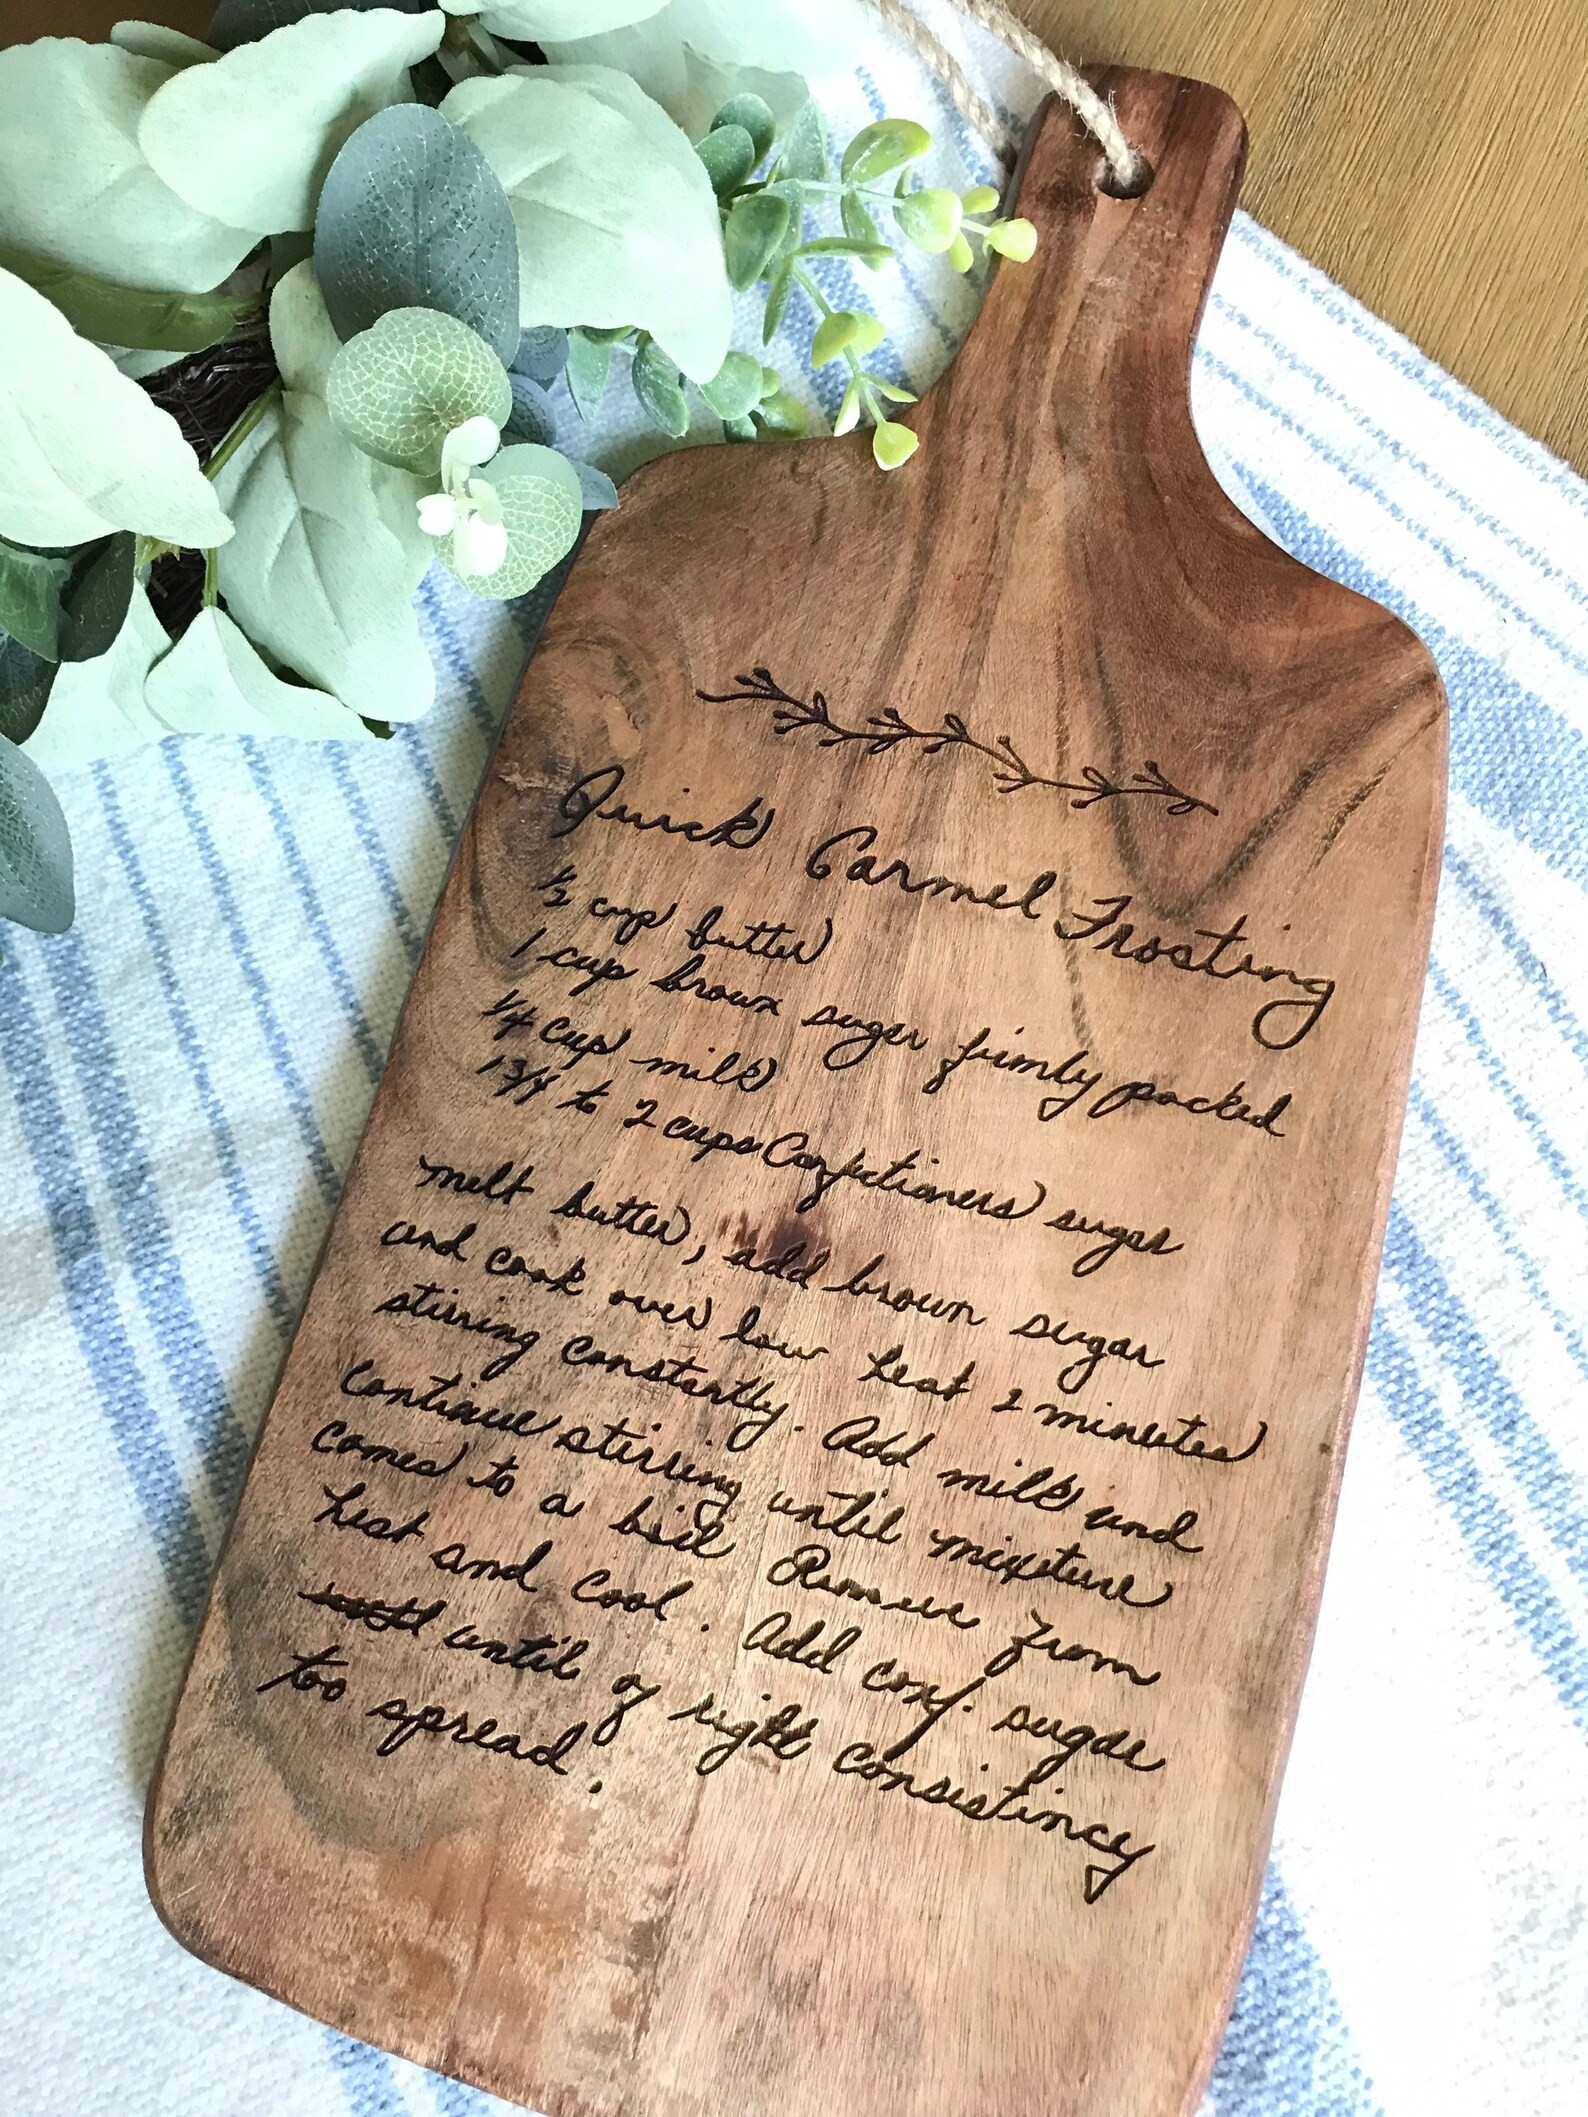 Quick Carmel Frosting
1/2 cup butter
1 cup brown sugar firmly packed
1/4 cup milk
1 3/4 to 2 cups Confectioners sugar
melt butter, add brown sugar
and cook over low heat 2 minutes
stirring constantly. Add milk and
continue stirring until mixture
comes to a boil Remove from
heat and cool. Add conf. sugar
until of right consistincy
too spread.